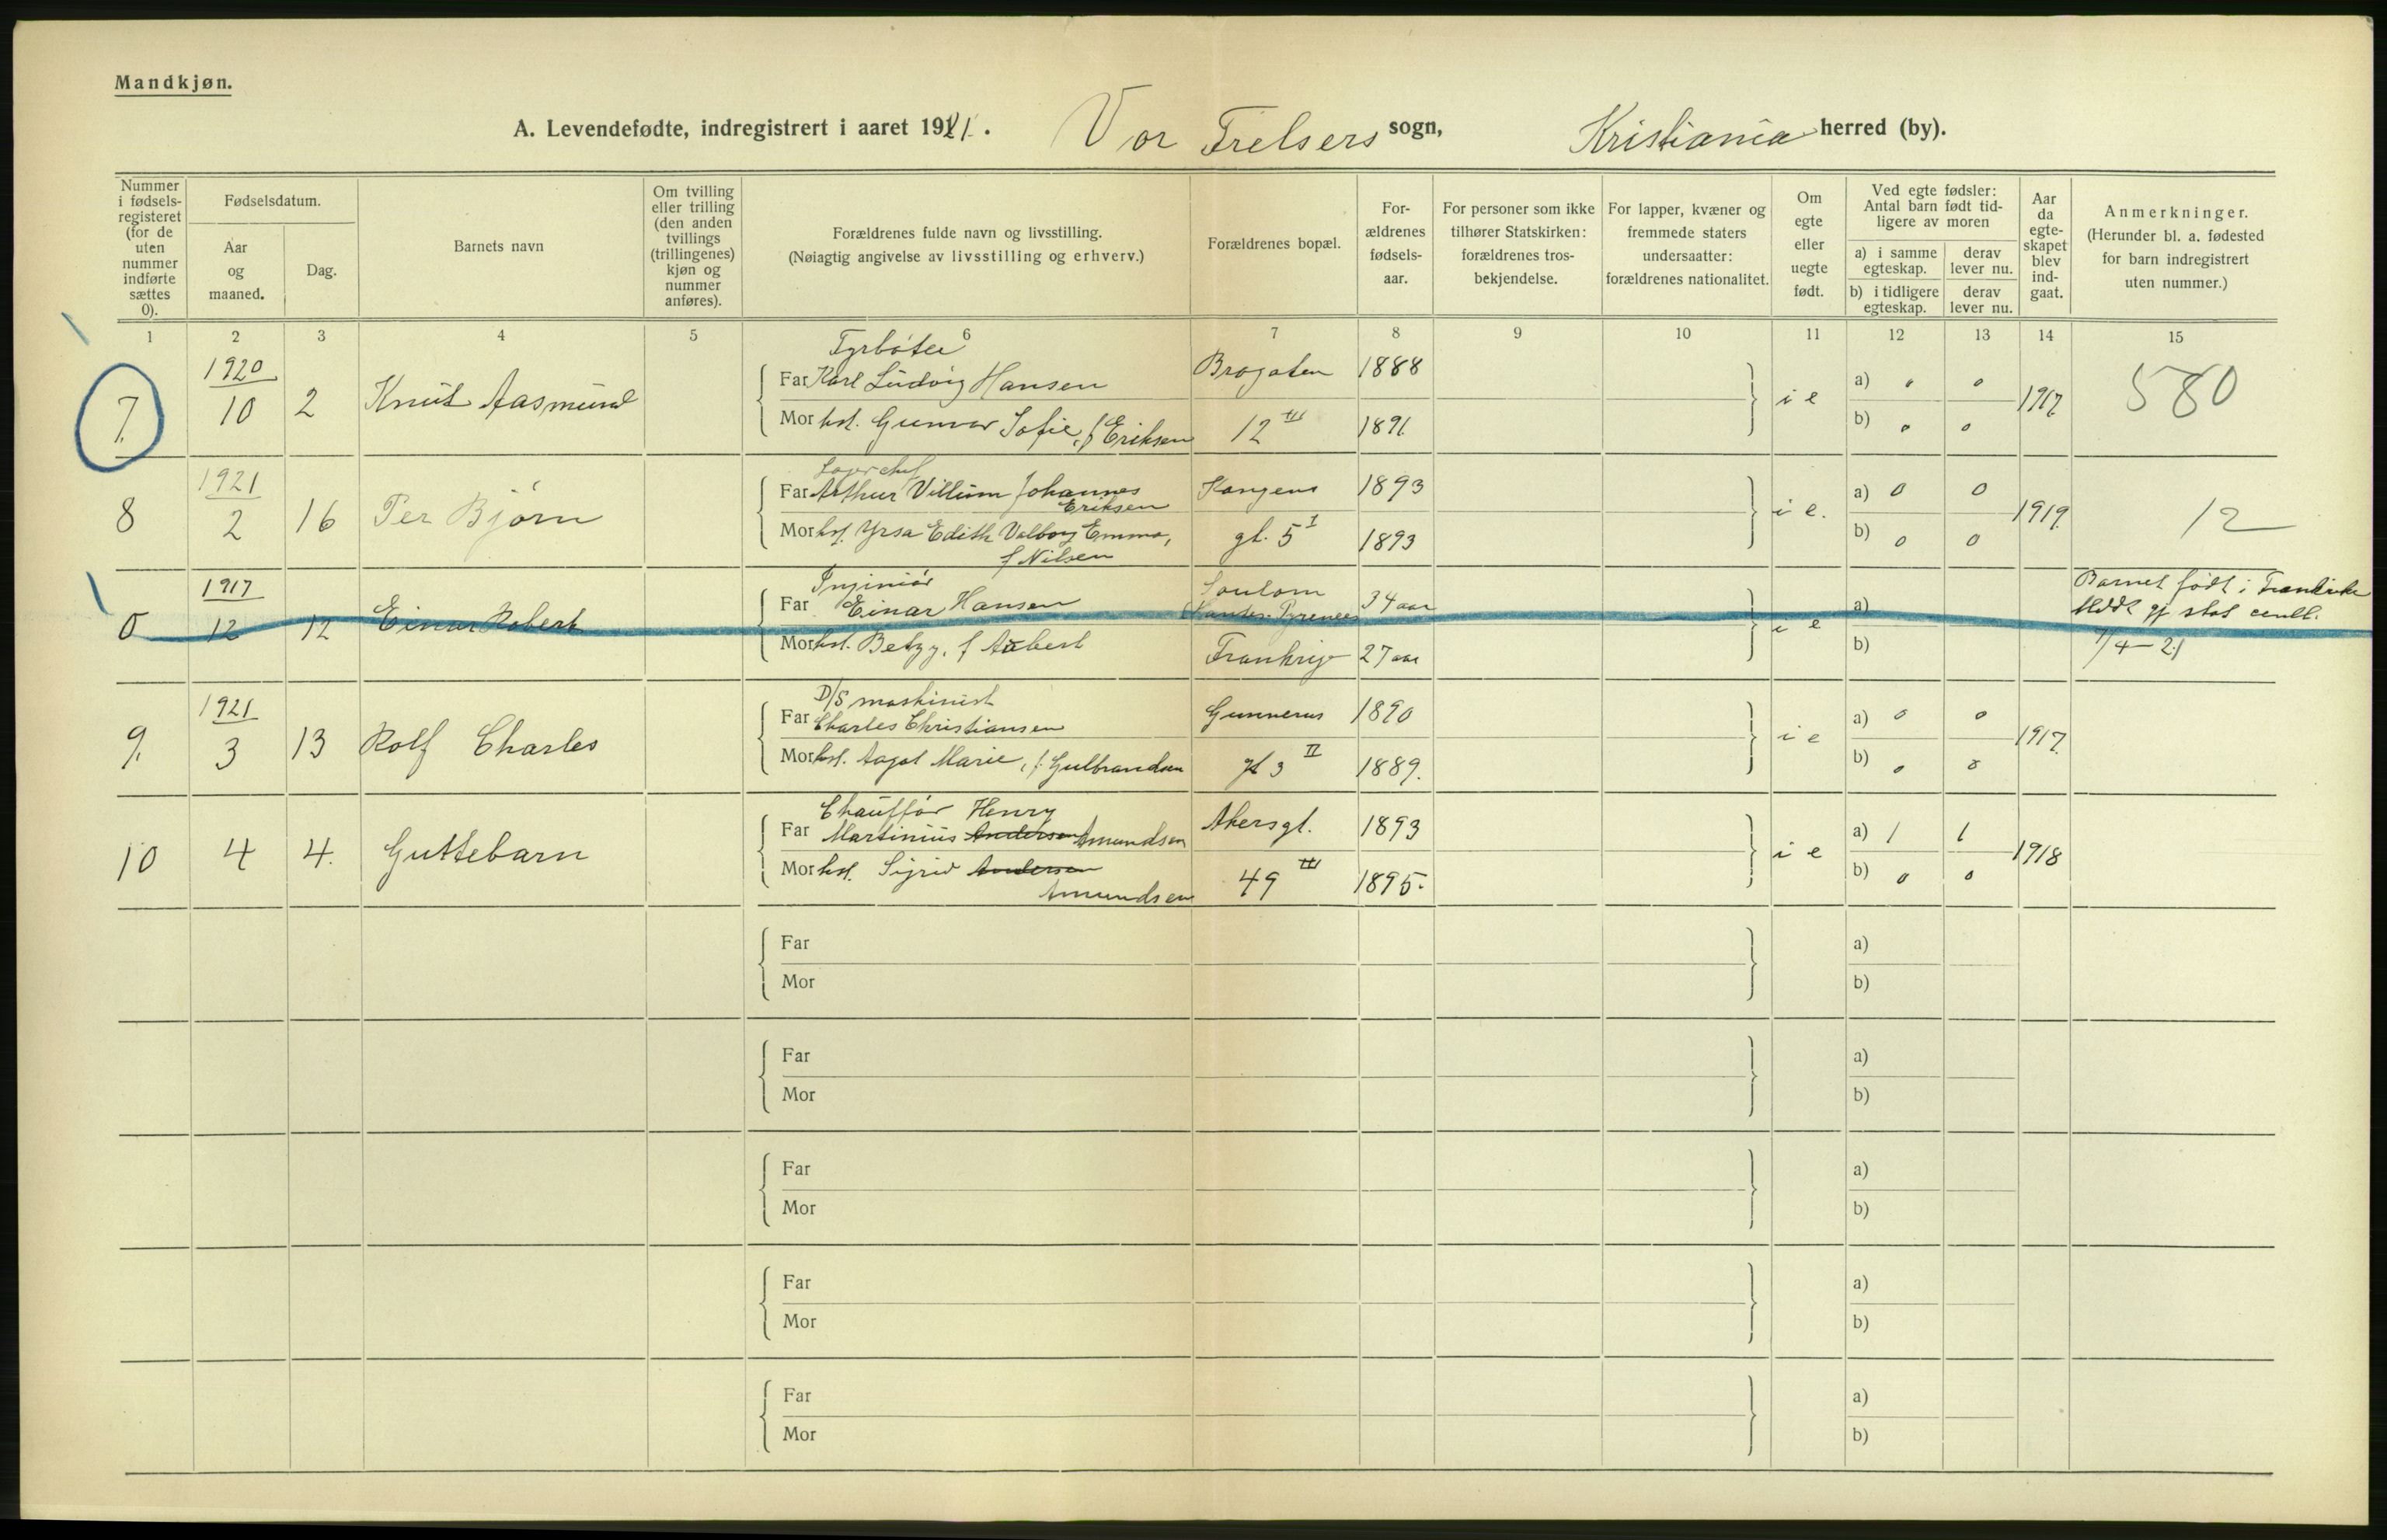 Mandkjøn.
A. Levendefødte, indregistrert i aaret 1921. Vor Frelsers sogn, Kristiania herred (by).
Nummer i fødsels-registeret (for de uten nummer indførte sættes 0).
Fødselsdatum.
Aar og maaned.
Dag.
Barnets navn
Om tvilling eller trilling (den anden tvillings (trillingenes) kjøn og nummer anføres).
Forældrenes fulde navn og livsstilling.
(Nøiagtig angivelse av livsstilling og erhverv.)
Forældrenes bopæl.
For-ældrenes fødsels-aar.
For personer som ikke tilhører Statskirken: forældrenes tros-bekjendelse.
For lapper, kvæner og fremmede staters undersaatter: forældrenes nationalitet.
Om egte eller uegte født.
Ved egte fødsler: Antal barn født tid-ligere av moren
a) i samme egteskap.
derav lever nu.
b) i tidligere egteskap.
derav lever nu.
Aar da egte-skapet blev ind-gaat.
Anmerkninger.
(Herunder bl. a. fødested for barn indregistrert uten nummer.)
1 2 3 4 5 6 7 8 9 10 11 12 13 14 15
7. 1920 10 2 Knut Aasmund
Fyrbøter
Far Karl Ludvig Hansen Brogaten 1888
Mor hst. Gunvor Sofie, f Eriksen 12 III 1891.
i e a) 0 0 b) 0 0 1917. 580
8 1921 2 16 Per Bjørn
Lagerchef
Far Arthur Villum Johannes Eriksen Kongens 1893
Mor hst. Yrsa Edith Valborg Emma, f Nilsen gt. 5 I 1893
i e. a) 0 0 b) 0 0 1919. 12
0 1917 12 12 Einar Robert
Ingeniør
Far Einar Hansen 34 aar
Mor hst. Betzy, f Frankrige 27 aar
i e a) b)
Barnet født i Frankrike
7/4-21
9. 1921 3 13 Rolf Charles
D/S maskinist
Far Charles Christiansen Gunnerus 1890
Mor hst. Aagot Marie, f. Gulbrandsen gt 3 II 1889.
i e a) 0 0 b) 0 0 1917.
10 4 4. Guttebarn
Chauffør Henry
Far Martinius Andersen Amundsen Akersgt. 1893
Mor hst. Sigrid Andersen Amundsen 49 III 1895.
i e a) 1 1 b) 0 0 1918
Far a)
Mor b)
Far a)
Mor b)
Far a)
Mor b)
Far a)
Mor b)
Far a)
Mor b)